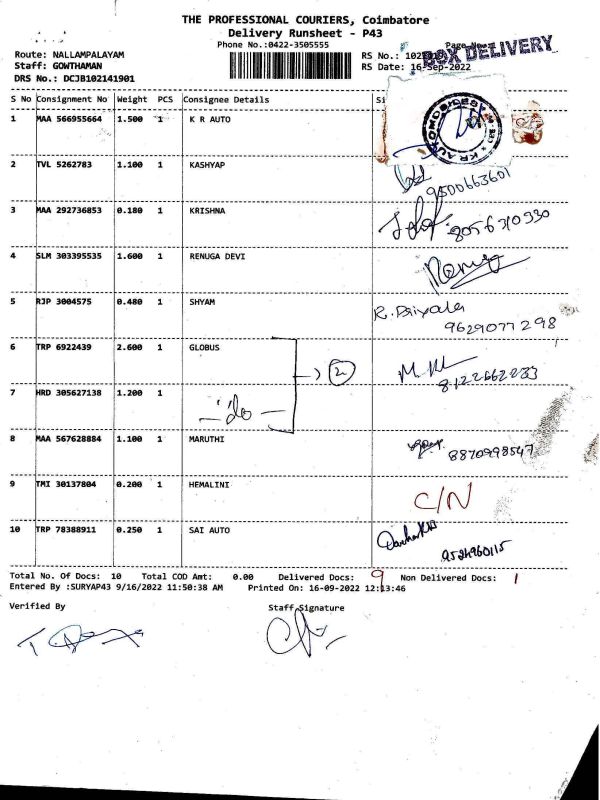 THE PROFESSIONAL COURIERS, Coimbatore
Delivery Runsheet - P43
Phone No.:0422-3505555
BOX DELIVERY
Route: NALLAMPALAYAM
Staff: GOWTHAMAN RS No.:
DRS No.: DCJB102141901 RS Date: 16-Sep-2022
S No Consignment No Weight PCS Consignee Details
1 MAA 566955664 1.500 1 K R AUTO
2 TVL 5262783 1.100 1 KASHYAP 9500663601
3 MAA 292736853 0.180 1 KRISHNA
4 SLM 303395535 1.600 1 RENUGA DEVI
5 RJP 3004575 0.480 1 SHYAM 9629077298
6 TRP 6922439 2.600 1 GLOBUS 2 8122662233
7 HRD 305627138 1.200 1 - do -
8 MAA 567628884 1.100 1 MARUTHI 8870998547
9 TMI 30137804 0.200 1 HEMALINI C/N
10 TRP 78388911 0.250 1 SAI AUTO 9524960115
Total No. Of Docs: 10 Total COD Amt: 0.00 Delivered Docs: 9 Non Delivered Docs: 1
Entered By :SURYAP43 9/16/2022 11:50:38 AM Printed On: 16-09-2022 12:13:46
Verified By Staff Signature